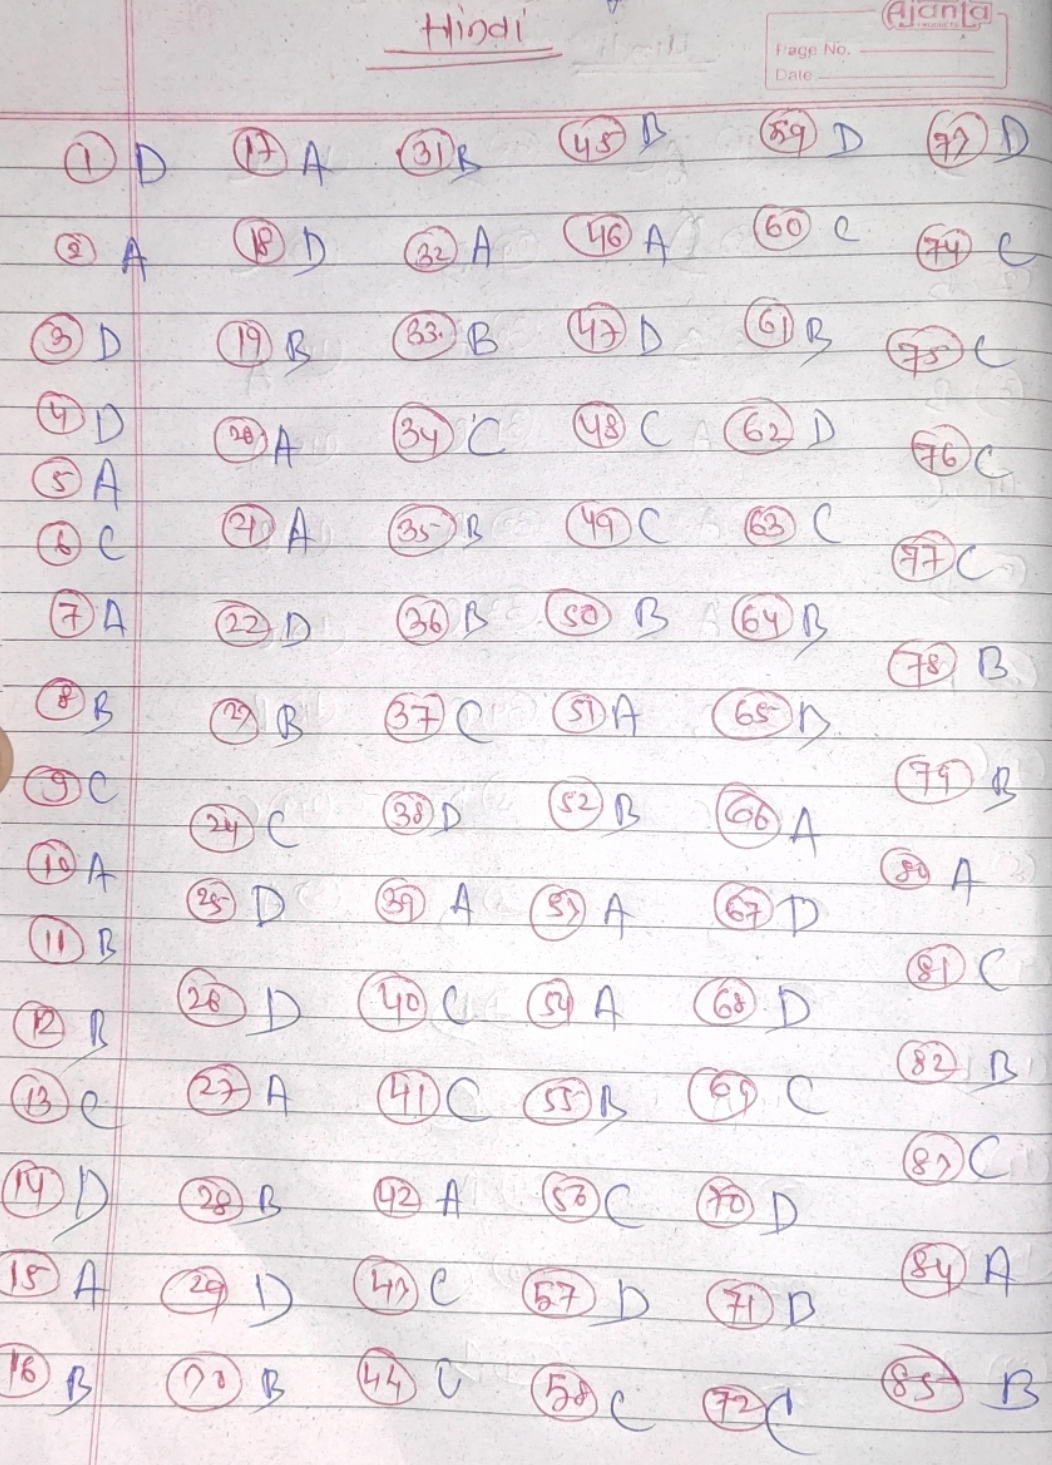 Hindi
Ajanta
Page No.
Date
1 D
2 A
3 D
4 D
5 A
6 C
7 A
8 B
9 C
10 A
11 B
12 B
13 C
14 D
15 A
16 B
17 A
18 D
19 B
20 A
21 A
22 D
23 B
24 C
25 D
26 D
27 A
28 B
29 D
30 B
31 B
32 A
33. B
34 C
35 B
36 B
37 C
38 D
39 A
40 C
41 C
42 A
43 C
44 C
45 B
46 A
47 D
48 C
49 C
50 B
51 A
52 B
53 A
54 A
55 B
56 C
57 D
58 C
59 D
60 C
61 B
62 D
63 C
64 B
65
66 A
67 D
68 D
69 C
70 D
71 B
72 C
73 D
74 C
75 C
76 C
77 C
78 B
79 B
80 A
81 C
82 B
83 C
84 A
85 B